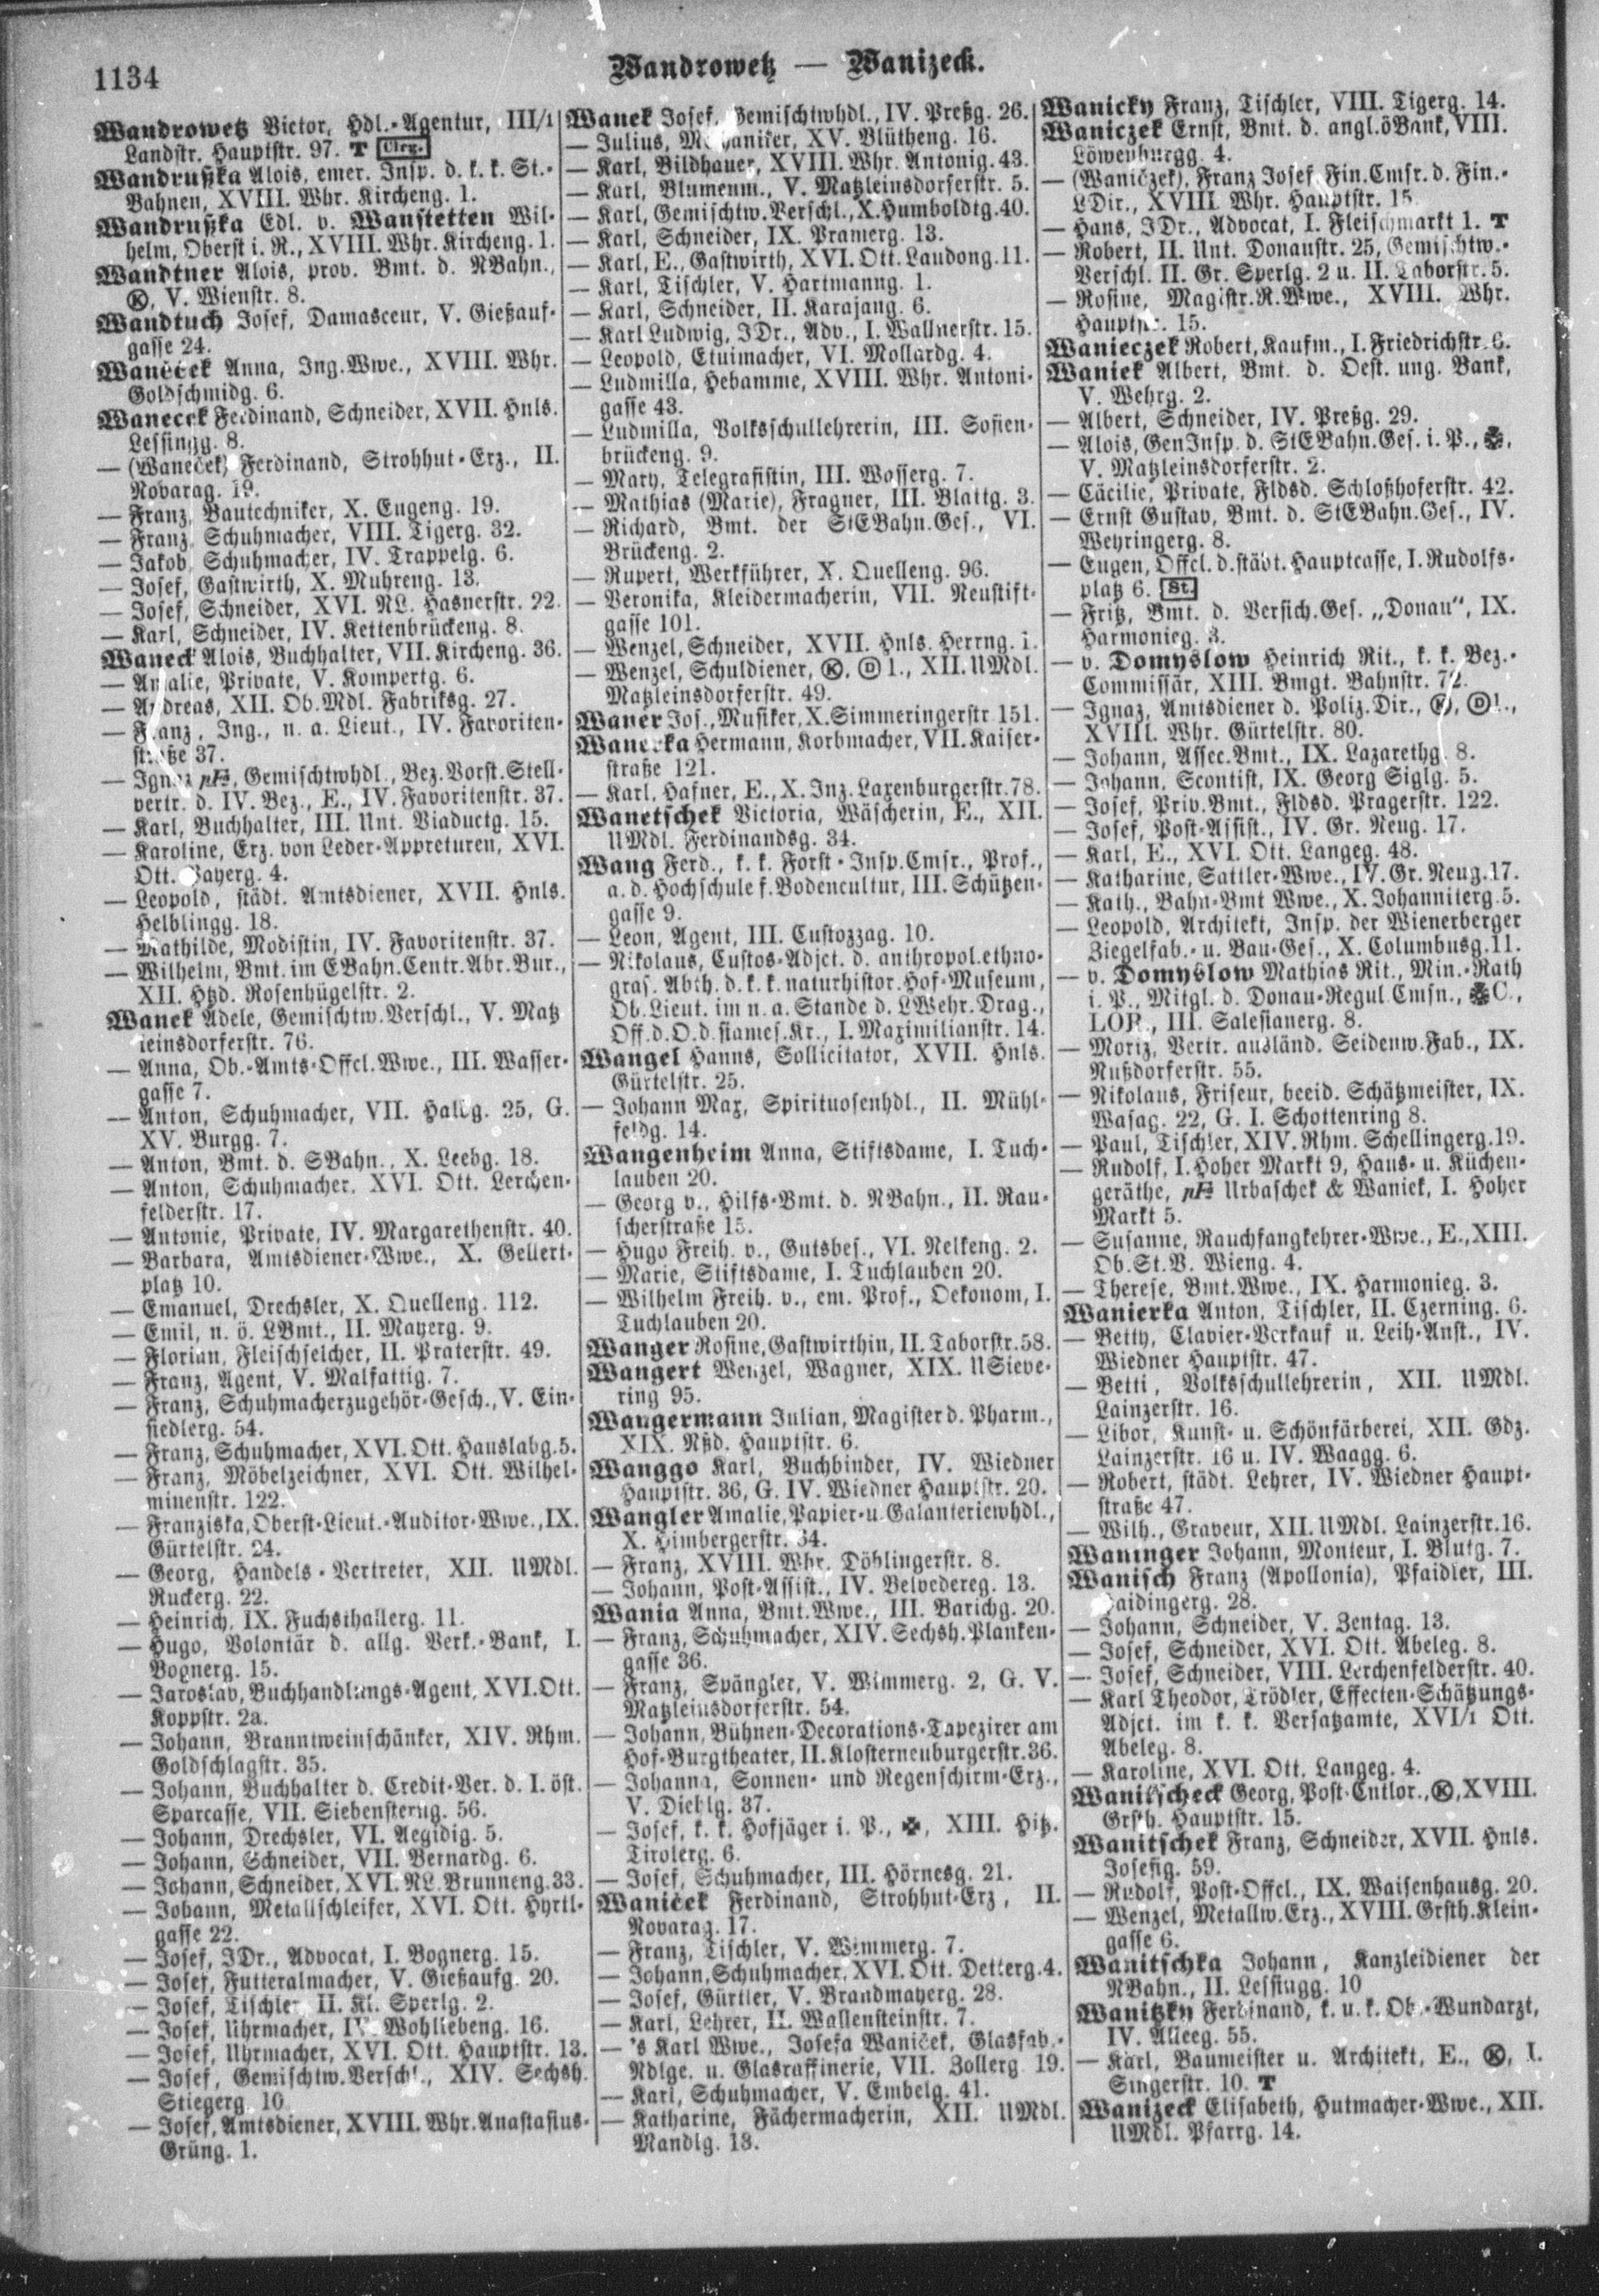 1134
Wandrowetz — Wanizeck.
Wandrowetz Victor, Hdl.-Agentur, III/1
Landstr. Hauptstr. 97. T
Wandrußka Alois, emer. Insp. d. k. k. St.-
Bahnen, XVIII. Whr. Kircheng. 1.
Wandrußka Edl. v. Wanstetten Wil-
helm, Oberst i. R., XVIII. Whr. Kircheng. 1.
Wandtner Alois, prov. Bmt. d. NBahn.,
Ⓚ, V. Wienstr. 8.
Wandtuch Josef, Damasceur, V. Gießauf-
gasse 24.
Waneček Anna, Ing.Wwe., XVIII. Whr.
Goldschmidg. 6.
Wanecek Ferdinand, Schneider, XVII. Hnls.
Lessingg. 8.
— (Waneček) Ferdinand, Strohhut-Erz., II.
Novarag. 19.
— Franz, Bautechniker, X. Eugeng. 19.
— Franz, Schuhmacher, VIII. Tigerg. 32.
— Jakob, Schuhmacher, IV. Trappelg. 6.
— Josef, Gastwirth, X. Muhreng. 13.
— Josef, Schneider, XVI. NL. Hasnerstr. 22.
— Karl, Schneider, IV. Kettenbrückeng. 8.
Waneck Alois, Buchhalter, VII. Kircheng. 36.
— Amalie, Private, V. Kompertg. 6.
— Andreas, XII. Ob.Mdl. Fabriksg. 27.
— Franz, Ing., n. a. Lieut., IV. Favoriten-
straße 37.
— Ignaz pF., Gemischtwhdl., Bez.Vorst.Stell-
vertr. d. IV. Bez., E., IV. Favoritenstr. 37.
— Karl, Buchhalter, III. Unt. Viaductg. 15.
— Karoline, Erz. von Leder-Appreturen, XVI.
Ott. Payerg. 4.
— Leopold, städt. Amtsdiener, XVII. Hnls.
Helblingg. 18.
— Mathilde, Modistin, IV. Favoritenstr. 37.
— Wilhelm, Bmt. im EBahn.Centr.Abr.Bur.,
XII. Htzd. Rosenhügelstr. 2.
Wanek Adele, Gemischtw.Verschl., V. Matz
leinsdorferstr. 76.
— Anna, Ob.-Amts-Offcl.Wwe., III. Wasser-
gasse 7.
— Anton, Schuhmacher, VII. Hallg. 25, G.
XV. Burgg. 7.
— Anton, Bmt. d. SBahn., X. Leebg. 18.
— Anton, Schuhmacher, XVI. Ott. Lerchen-
felderstr. 17.
— Antonie, Private, IV. Margarethenstr. 40.
— Barbara, Amtsdiener-Wwe., X. Gellert-
platz 10.
— Emanuel, Drechsler, X. Quelleng. 112.
— Emil, n. ö. LBmt., II. Mayerg. 9.
— Florian, Fleischselcher, II. Praterstr. 49.
— Franz, Agent, V. Malfattig. 7.
— Franz, Schuhmacherzugehör-Gesch., V. Ein-
siedlerg. 54.
— Franz, Schuhmacher, XVI. Ott. Hauslabg. 5.
— Franz, Möbelzeichner, XVI. Ott. Wilhel-
minenstr. 122.
— Franziska, Oberst-Lieut.-Auditor-Wwe., IX.
Gürtelstr. 24.
— Georg, Handels-Vertreter, XII. UMdl.
Ruckerg. 22.
— Heinrich, IX. Fuchsthallerg. 11.
— Hugo, Volontär d. allg. Verk.-Bank, I.
Bognerg. 15.
— Jaroslav, Buchhandlungs-Agent, XVI.Ott.
Koppstr. 2a.
— Johann, Branntweinschänker, XIV. Rhm.
Goldschlagstr. 35.
— Johann, Buchhalter d. Credit-Ver. d. I. öst.
Sparcasse, VII. Siebensterng. 56.
— Johann, Drechsler, VI. Aegidig. 5.
— Johann, Schneider, VII. Bernardg. 6.
— Johann, Schneider, XVI. NL. Brunneng. 33.
— Johann, Metallschleifer, XVI. Ott. Hyrtl-
gasse 22.
— Josef, JDr., Advocat, I. Bognerg. 15.
— Josef, Futteralmacher, V. Gießaufg. 20.
— Josef, Tischler, II. Kl. Sperlg. 2.
— Josef, Uhrmacher, IV. Wohllebeng. 16.
— Josef, Uhrmacher, XVI. Ott. Hauptstr. 13.
— Josef, Gemischtw.Verschl., XIV. Sechsh.
Stiegerg. 10
— Josef, Amtsdiener, XVIII. Whr. Anastasius-
Grüng. 1.
Wanek Josef, Gemischtwhdl., IV. Preßg. 26.
— Julius, Mechaniker, XV. Blütheng. 16.
— Karl, Bildhauer, XVIII. Whr. Antonig. 43.
— Karl, Blumenm., V. Matzleinsdorferstr. 5.
— Karl, Gemischtw.Verschl., X. Humboldtg. 40.
— Karl, Schneider, IX. Pramerg. 13.
— Karl, E., Gastwirth, XVI. Ott. Laudong. 11.
— Karl, Tischler, V. Hartmanng. 1.
— Karl, Schneider, II. Karajang. 6.
— Karl Ludwig, JDr., Adv., I. Wallnerstr. 15.
— Leopold, Etuimacher, VI. Mollardg. 4.
— Ludmilla, Hebamme, XVIII. Whr. Antoni-
gasse 43.
— Ludmilla, Volksschullehrerin, III. Sofien-
brückeng. 9.
— Mary, Telegrafistin, III. Wasserg. 7.
— Mathias (Marie), Fragner, III. Blattg. 3.
— Richard, Bmt. der StEBahn.Ges., VI.
Brückeng. 2.
— Rupert, Werkführer, X. Quelleng. 96.
— Veronika, Kleidermacherin, VII. Neustift-
gasse 101.
— Wenzel, Schneider, XVII. Hnls. Herrng. 1.
— Wenzel, Schuldiener, Ⓚ, Ⓓ 1., XII. UMdl.
Matzleinsdorferstr. 49.
Waner Jos., Musiker, X. Simmeringerstr. 151.
Wanerka Hermann, Korbmacher, VII. Kaiser-
straße 121.
— Karl, Hafner, E., X. Inz. Laxenburgerstr. 78.
Wanetschek Victoria, Wäscherin, E., XII.
UMdl. Ferdinandsg. 34.
Wang Ferd., k. k. Forst-Insp.Cmsr., Prof.,
a. d. Hochschule f. Bodencultur, III. Schützen-
gasse 9.
— Leon, Agent, III. Custozzag. 10.
— Nikolaus, Custos-Adjct. d. anthropol.ethno-
graf. Abth. d. k. k. naturhistor. Hof-Museum,
Ob.Lieut. im n. a. Stande d. LWehr.Drag.,
Off.d.O.d.siames.Kr., I. Maximilianstr. 14.
Wangel Hanns, Sollicitator, XVII. Hnls.
Gürtelstr. 25.
— Johann Max, Spirituosenhdl., II. Mühl-
feldg. 14.
Wangenheim Anna, Stiftsdame, I. Tuch-
lauben 20.
— Georg v., Hilfs-Bmt. d. NBahn., II. Rau-
scherstraße 15.
— Hugo Freih. v., Gutsbes., VI. Nelkeng. 2.
— Marie, Stiftsdame, I. Tuchlauben 20.
— Wilhelm Freih. v., em. Prof., Oekonom, I.
Tuchlauben 20.
Wanger Rosine, Gastwirthin, II. Taborstr. 58.
Wangert Wenzel, Wagner, XIX. USieve-
ring 95.
Wangermann Julian, Magister d. Pharm.,
XIX. Nßd. Hauptstr. 6.
Wanggo Karl, Buchbinder, IV. Wiedner
Hauptstr. 36, G. IV. Wiedner Hauptstr. 20.
Wangler Amalie, Papier-u. Galanteriewhdl.,
X. Himbergerstr. 64.
— Franz, XVIII. Whr. Döblingerstr. 8.
— Johann, Post-Assist., IV. Belvedereg. 13.
Wania Anna, Bmt.Wwe., III. Barichg. 20.
— Franz, Schuhmacher, XIV. Sechsh. Planken-
gasse 36.
— Franz, Spängler, V. Wimmerg. 2, G. V.
Matzleinsdorferstr. 54.
— Johann, Bühnen-Decorations-Tapezirer am
Hof-Burgtheater, II. Klosterneuburgerstr. 36.
— Johanna, Sonnen- und Regenschirm-Erz.,
V. Dieblg. 37.
— Josef, k. k. Hofjäger i. P., ✠, XIII. Hitz.
Tirolerg. 6.
— Josef, Schuhmacher, III. Hörnesg. 21.
Waniček Ferdinand, Strohhut-Erz, II.
Novarag. 17.
— Franz, Tischler, V. Wimmerg. 7.
— Johann, Schuhmacher, XVI. Ott. Detterg. 4.
— Josef, Gürtler, V. Brandmayerg. 28.
— Karl, Lehrer, II. Wallensteinstr. 7.
— 's Karl Wwe., Josefa Waniček, Glasfab.-
Ndlge. u. Glasraffinerie, VII. Zollerg. 19.
— Karl, Schuhmacher, V. Embelg. 41.
— Katharine, Fächermacherin, XII. UMdl.
Mandlg. 13.
Wanicky Franz, Tischler, VIII. Tigerg. 14.
Waniczek Ernst, Bmt. d. angl.öBank, VIII.
Löwenburgg. 4.
— (Waničzek), Franz Josef, Fin.Cmsr. d. Fin.-
LDir., XVIII. Whr. Hauptstr. 15.
— Hans, JDr., Advocat, I. Fleischmarkt 1. T
— Robert, II. Unt. Donaustr. 25, Gemischtw.-
Verschl. II. Gr. Sperlg. 2 u. II. Taborstr. 5.
— Rosine, Magistr.R.Wwe., XVIII. Whr.
Hauptstr. 15.
Wanieczek Robert, Kaufm., I. Friedrichstr. 6.
Waniek Albert, Bmt. d. Oest. ung. Bank,
V. Wehrg. 2.
— Albert, Schneider, IV. Preßg. 29.
— Alois, GenInsp. d. StEBahn.Ges. i. P., ✠,
V. Matzleinsdorferstr. 2.
— Cäcilie, Private, Fldsd. Schloßhoferstr. 42.
— Ernst Gustav, Bmt. d. StEBahn.Ges., IV.
Weyringerg. 8.
— Eugen, Offcl. d. städt. Hauptcasse, I. Rudolfs-
platz 6. St.
— Fritz, Bmt. d. Versich.Ges. „Donau", IX.
Harmonieg. 3.
— v. Domyslow Heinrich Rit., k. k. Bez.-
Commissär, XIII. Bmgt. Bahnstr. 72.
— Ignaz, Amtsdiener d. Poliz.Dir., Ⓚ, Ⓓ1.,
XVIII. Whr. Gürtelstr. 80.
— Johann, Assec.Bmt., IX. Lazarethg. 8.
— Johann, Scontist, IX. Georg Siglg. 5.
— Josef, Priv.Bmt., Fldsd. Pragerstr. 122.
— Josef, Post-Assist., IV. Gr. Neug. 17.
— Karl, E., XVI. Ott. Langeg. 48.
— Katharine, Sattler-Wwe., IV. Gr. Neug. 17.
— Kath., Bahn-Bmt Wwe., X. Johanniterg. 5.
— Leopold, Architekt, Insp. der Wienerberger
Ziegelfab.- u. Bau-Ges., X. Columbusg. 11.
— v. Domyslow Mathias Rit., Min.-Rath
i. P., Mitgl. d. Donau-Regul.Cmsn., ✠C.,
LOR., III. Salesianerg. 8.
— Moriz, Vertr. ausländ. Seidenw.Fab., IX.
Nußdorferstr. 55.
— Nikolaus, Friseur, beeid. Schätzmeister, IX.
Wasag. 22, G. I. Schottenring 8.
— Paul, Tischler, XIV. Rhm. Schellingerg. 19.
— Rudolf, I. Hoher Markt 9, Haus- u. Küchen-
geräthe, pF. Urbaschek & Waniek, I. Hoher
Markt 5.
— Susanne, Rauchfangkehrer-Wwe., E., XIII.
Ob.St.V. Wieng. 4.
— Therese, Bmt.Wwe., IX. Harmonieg. 3.
Wanierka Anton, Tischler, II. Czerning. 6.
— Betty, Clavier-Verkauf u. Leih-Anst., IV.
Wiedner Hauptstr. 47.
— Betti, Volksschullehrerin, XII. UMdl.
Lainzerstr. 16.
— Libor, Kunst- u. Schönfärberei, XII. Gdz.
Lainzerstr. 16 u. IV. Waagg. 6.
— Robert, städt. Lehrer, IV. Wiedner Haupt-
straße 47.
— Wilh., Graveur, XII. UMdl. Lainzerstr. 16.
Waninger Johann, Monteur, I. Blutg. 7.
Wanisch Franz (Apollonia), Pfaidler, III.
Haidingerg. 28.
— Johann, Schneider, V. Zentag. 13.
— Josef, Schneider, XVI. Ott. Abeleg. 8.
— Josef, Schneider, VIII. Lerchenfelderstr. 40.
— Karl Theodor, Trödler, Effecten-Schätzungs-
Adjct. im k. k. Versatzamte, XVI/1 Ott.
Abeleg. 8.
— Karoline, XVI. Ott. Langeg. 4.
Wanitscheck Georg, Post-Cntlor., Ⓚ, XVIII.
Grsth. Hauptstr. 15.
Wanitschek Franz, Schneider, XVII. Hnls.
Josefig. 59.
— Rudolf, Post-Offcl., IX. Waisenhausg. 20.
— Wenzel, Metallw.Erz., XVIII. Grsth. Klein-
gasse 6.
Wanitschka Johann, Kanzleidiener der
NBahn., II. Lessingg. 10
Wanitzky Ferdinand, k. u. k. Ob.-Wundarzt,
IV. Alleeg. 55.
— Karl, Baumeister u. Architekt, E., Ⓚ, I.
Singerstr. 10. T
Wanizeck Elisabeth, Hutmacher-Wwe., XII.
UMdl. Pfarrg. 14.